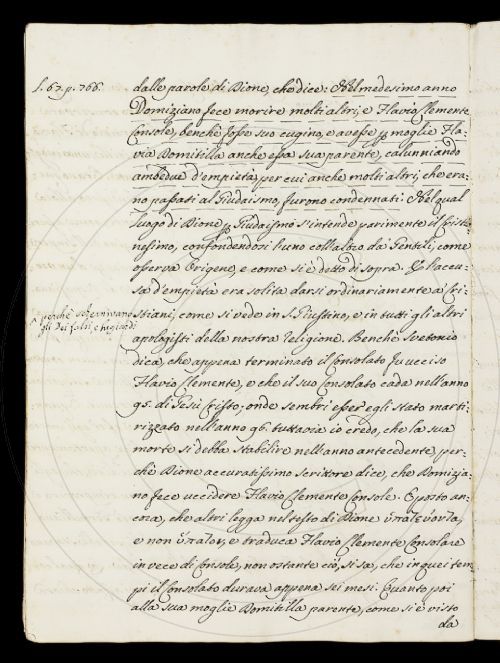 l. 67. p. 766.
dalle parole di Dione, che dice: Nel medesimo anno
Domiziano fece morire molti altri, e Flavio Clemente
Console, benchè fosse suo cugino, e avesse p moglie Fla=
via Domitilla anche essa sua parente, calunniando
ambedue d'empietà, per cui anche molti altri, che era=
no passati al Giudaismo, furono condannati: Nel qual
luogo di Dione p Giudaismo s'intende parimente il Cristia=
nesimo, confondendosi l'uno coll'altro da' Gentili, come
osserva Origene, e come si è detto di sopra. E l'accu=
sa d'empietà era solita darsi ordinariamente a' Cri=
^ perchè schernivano
gli Dei falsi, e bugiardi
stiani, come si vede in S. Giustino, e in tutti gli altri
apologisti della nostra religione. Benchè Svetonio
dica, che appena terminato il Consolato fu ucciso
Flavio Clemente, e che il suo Consolato cada nell'anno
95. di Gesù Cristo, onde sembri esser egli stato marti=
rizzato nell'anno 96. tuttavia io credo, che la sua
morte si debba stabilire nell'anno antecedente, per=
chè Dione accuratissimo scrittore dice, che Domizia=
no fece uccidere Flavio Clemente Console. E posto an=
cora, che altri legga nel testo di Dione ὑπατεύοντα,
e non ὕπατον, e traduca Flavio Clemente Consolare
in vece di Console, non ostante ciò, si sa, che in quei tem
pi il Consolato durava appena sei mesi. Quanto poi
alla sua moglie Domitilla parente, come si è visto
da